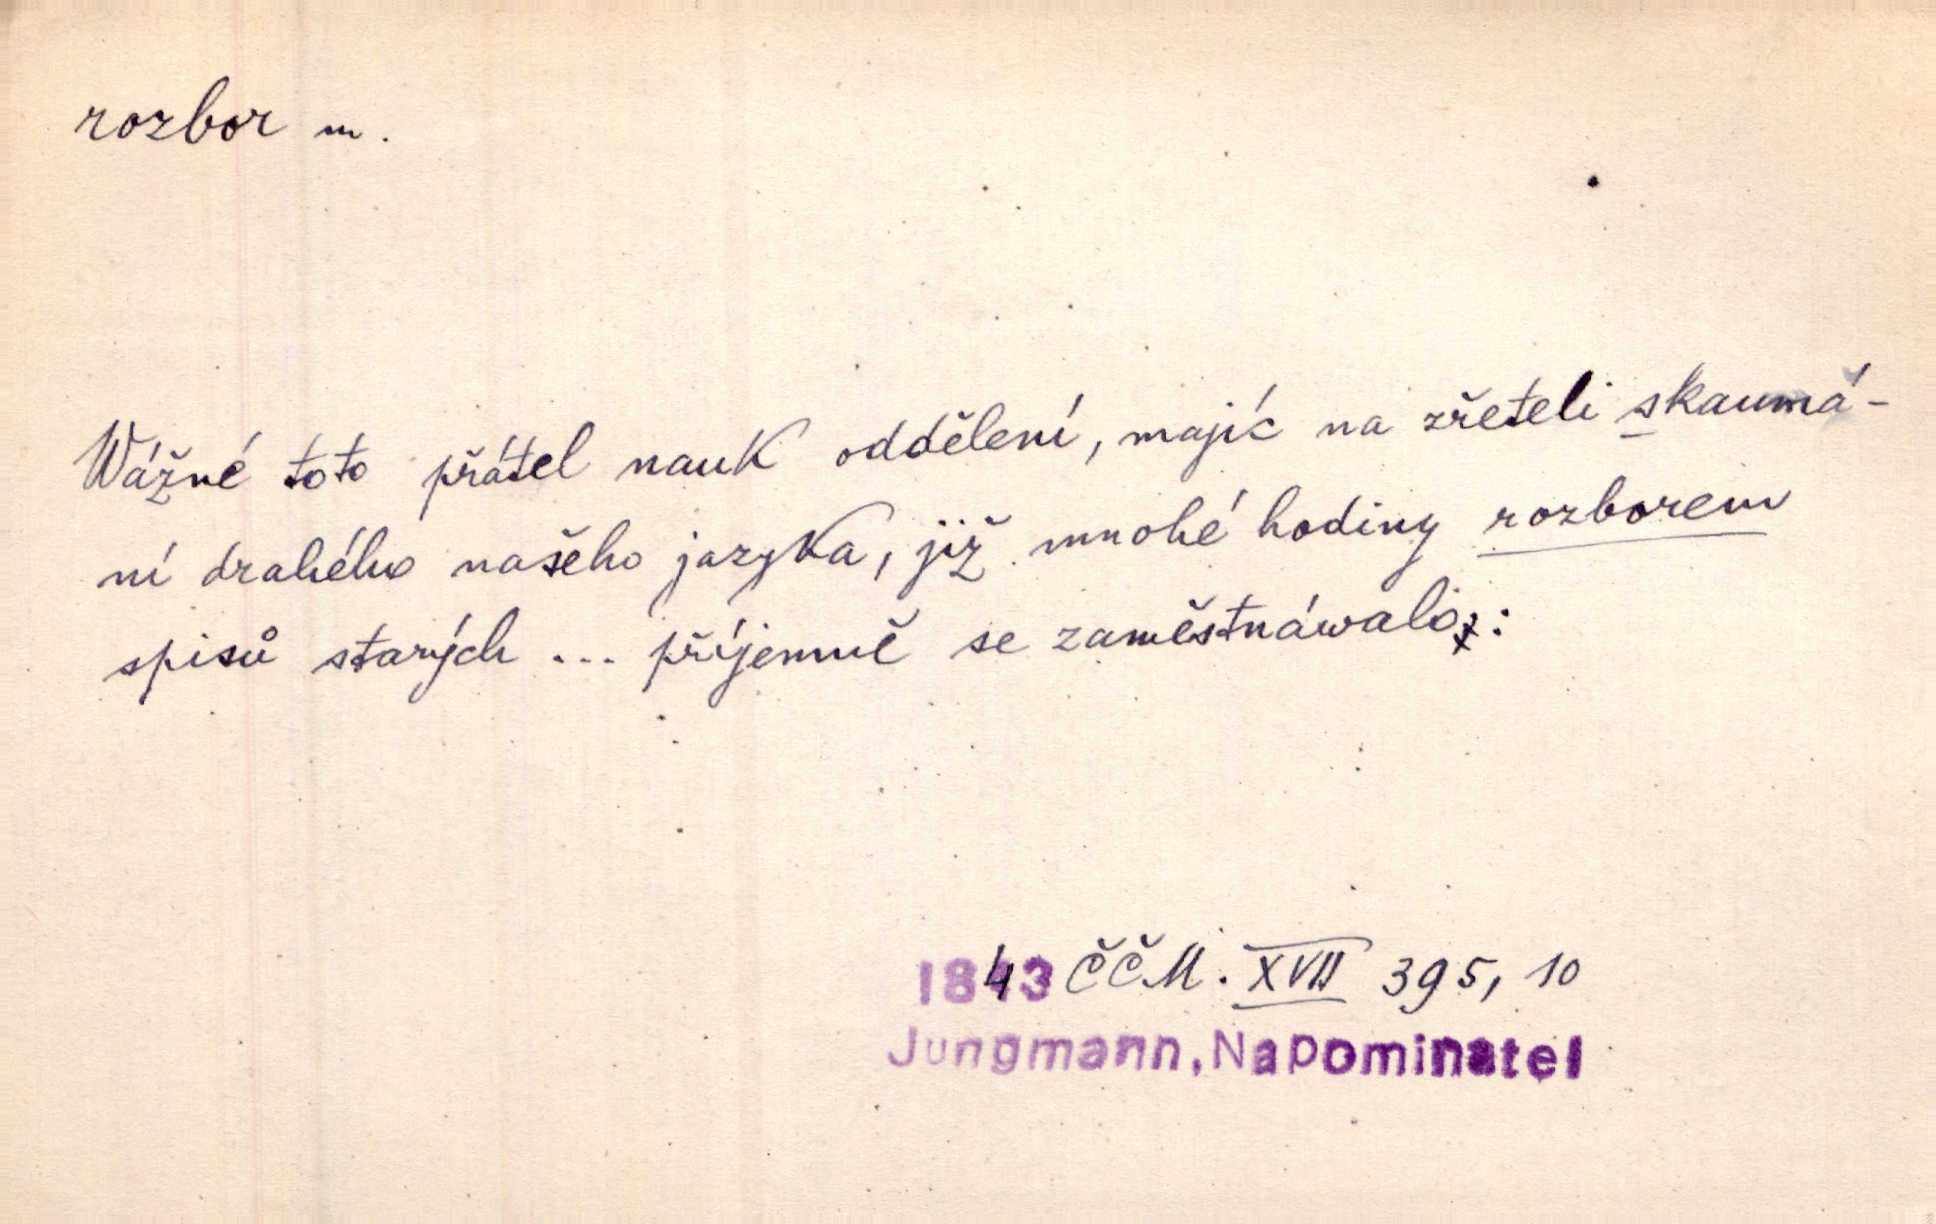 rozbor m.
Wážné toto přátel nauk oddělení, majíc na zřeteli skaumá-
ní drahého našeho jazyka, již mnohé hodiny rozborem
spisů starých ... příjemně se zaměstnáwalo:
1843 ČČM. XVII 395, 10
Jungmann, Napominatel